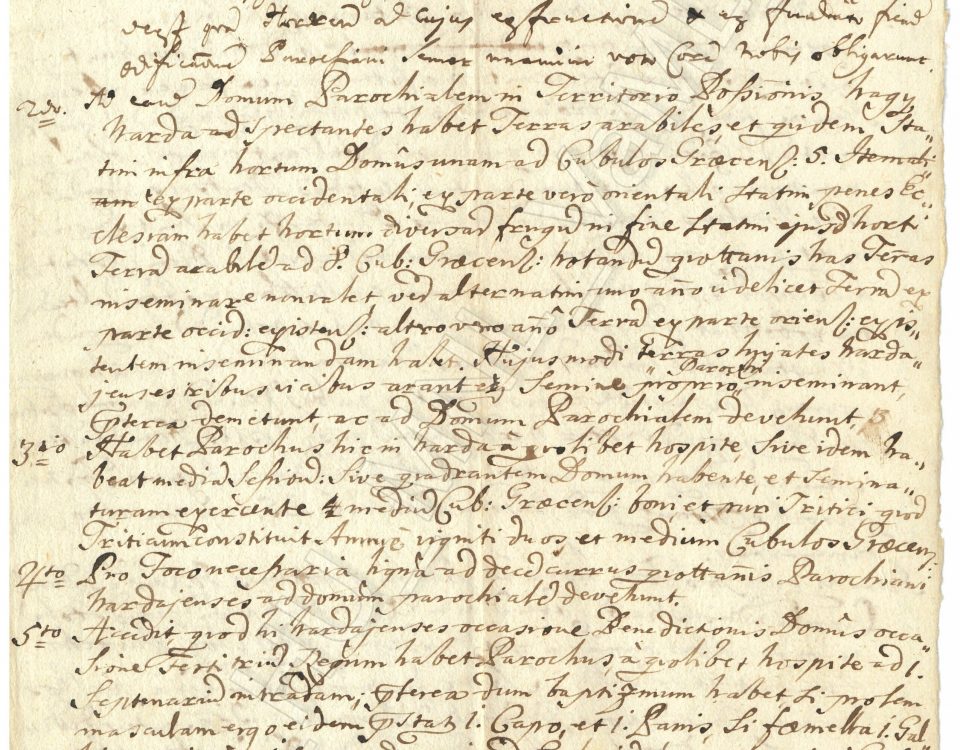 deest qvod Horreum ad cujus exstructionem & ex fundamto fiend
ædificâonem Parochiani semet unanimi voto Coram nobis obligarunt.
2do. Ad eand Domum Parochialem in Territorio Possiônis Nagy
Harda adspectantes habet Terras arabiles, et qvidem Sta„
tim infra hortum Domûs unam ad Cubulos Græcens: 5. Item ali„
am ex parte occidentali, ex parte verò orientali statim penes Ec„
clesiam habet hortum diversarum frugum in fine statim ejusd horti
Terram arabilem ad Cub: Græcens: notandum qvottannis has Terras
inseminare non valet verum alternatim uno año videlicet Terram ex
parte occid: existens: altero vero año Terram ex parte oriens: exis„
tentem inseminandam habet. Hujusmodi terras hyjates Harda„
jenses tribus viabus arant et Semine proprio Parochi inseminant,
Prterea demetunt, ac ad Domum Parochialem devehunt,
3tio Habet Parochus hic in Harda à qvolibet hospite, sive idem ha„
beat mediam Sessionem: sive qvadrantem Domum habente, et semina„
turam exercente medium Cub: Græcens: boni et puri Tritici qvod
Triticum constituit Annuè viginti duos, et medium Cubulos Græcens:
4to Pro Foco necessaria ligna ad decem currus qvottannis Parochiani
Hardajenses ad domum parochialem devehunt.
5to Accedit, qvod hi Hardajenses occasione Benedictionis Domûs occa„
sione Festi trium Regum habet Parochus, à qvolibet hospite ad 1.
Septenarium intradam, Prterea dum baptizmum habet, si prolem
masculam ergo eidem Præstat 1. Capo, et 1. Panis, si fæmella 1. Gal